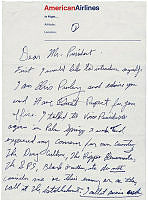 AmericanAirlines
In Flight...
Altitude;
Location;
Dear Mr. President.
First I would like to introduce myself.
I am Elvis Presley and admire you
and Have Great Respect for your
office. I talked to Vice President
Agnew in Palm Springs 3 weeks and
expressed my concern for our country.
The Drug Culture, The Hippie Elements,
The SDS, Black Panthers, etc do not
consider me as their enemy or as they
call it The Establishment. I call it